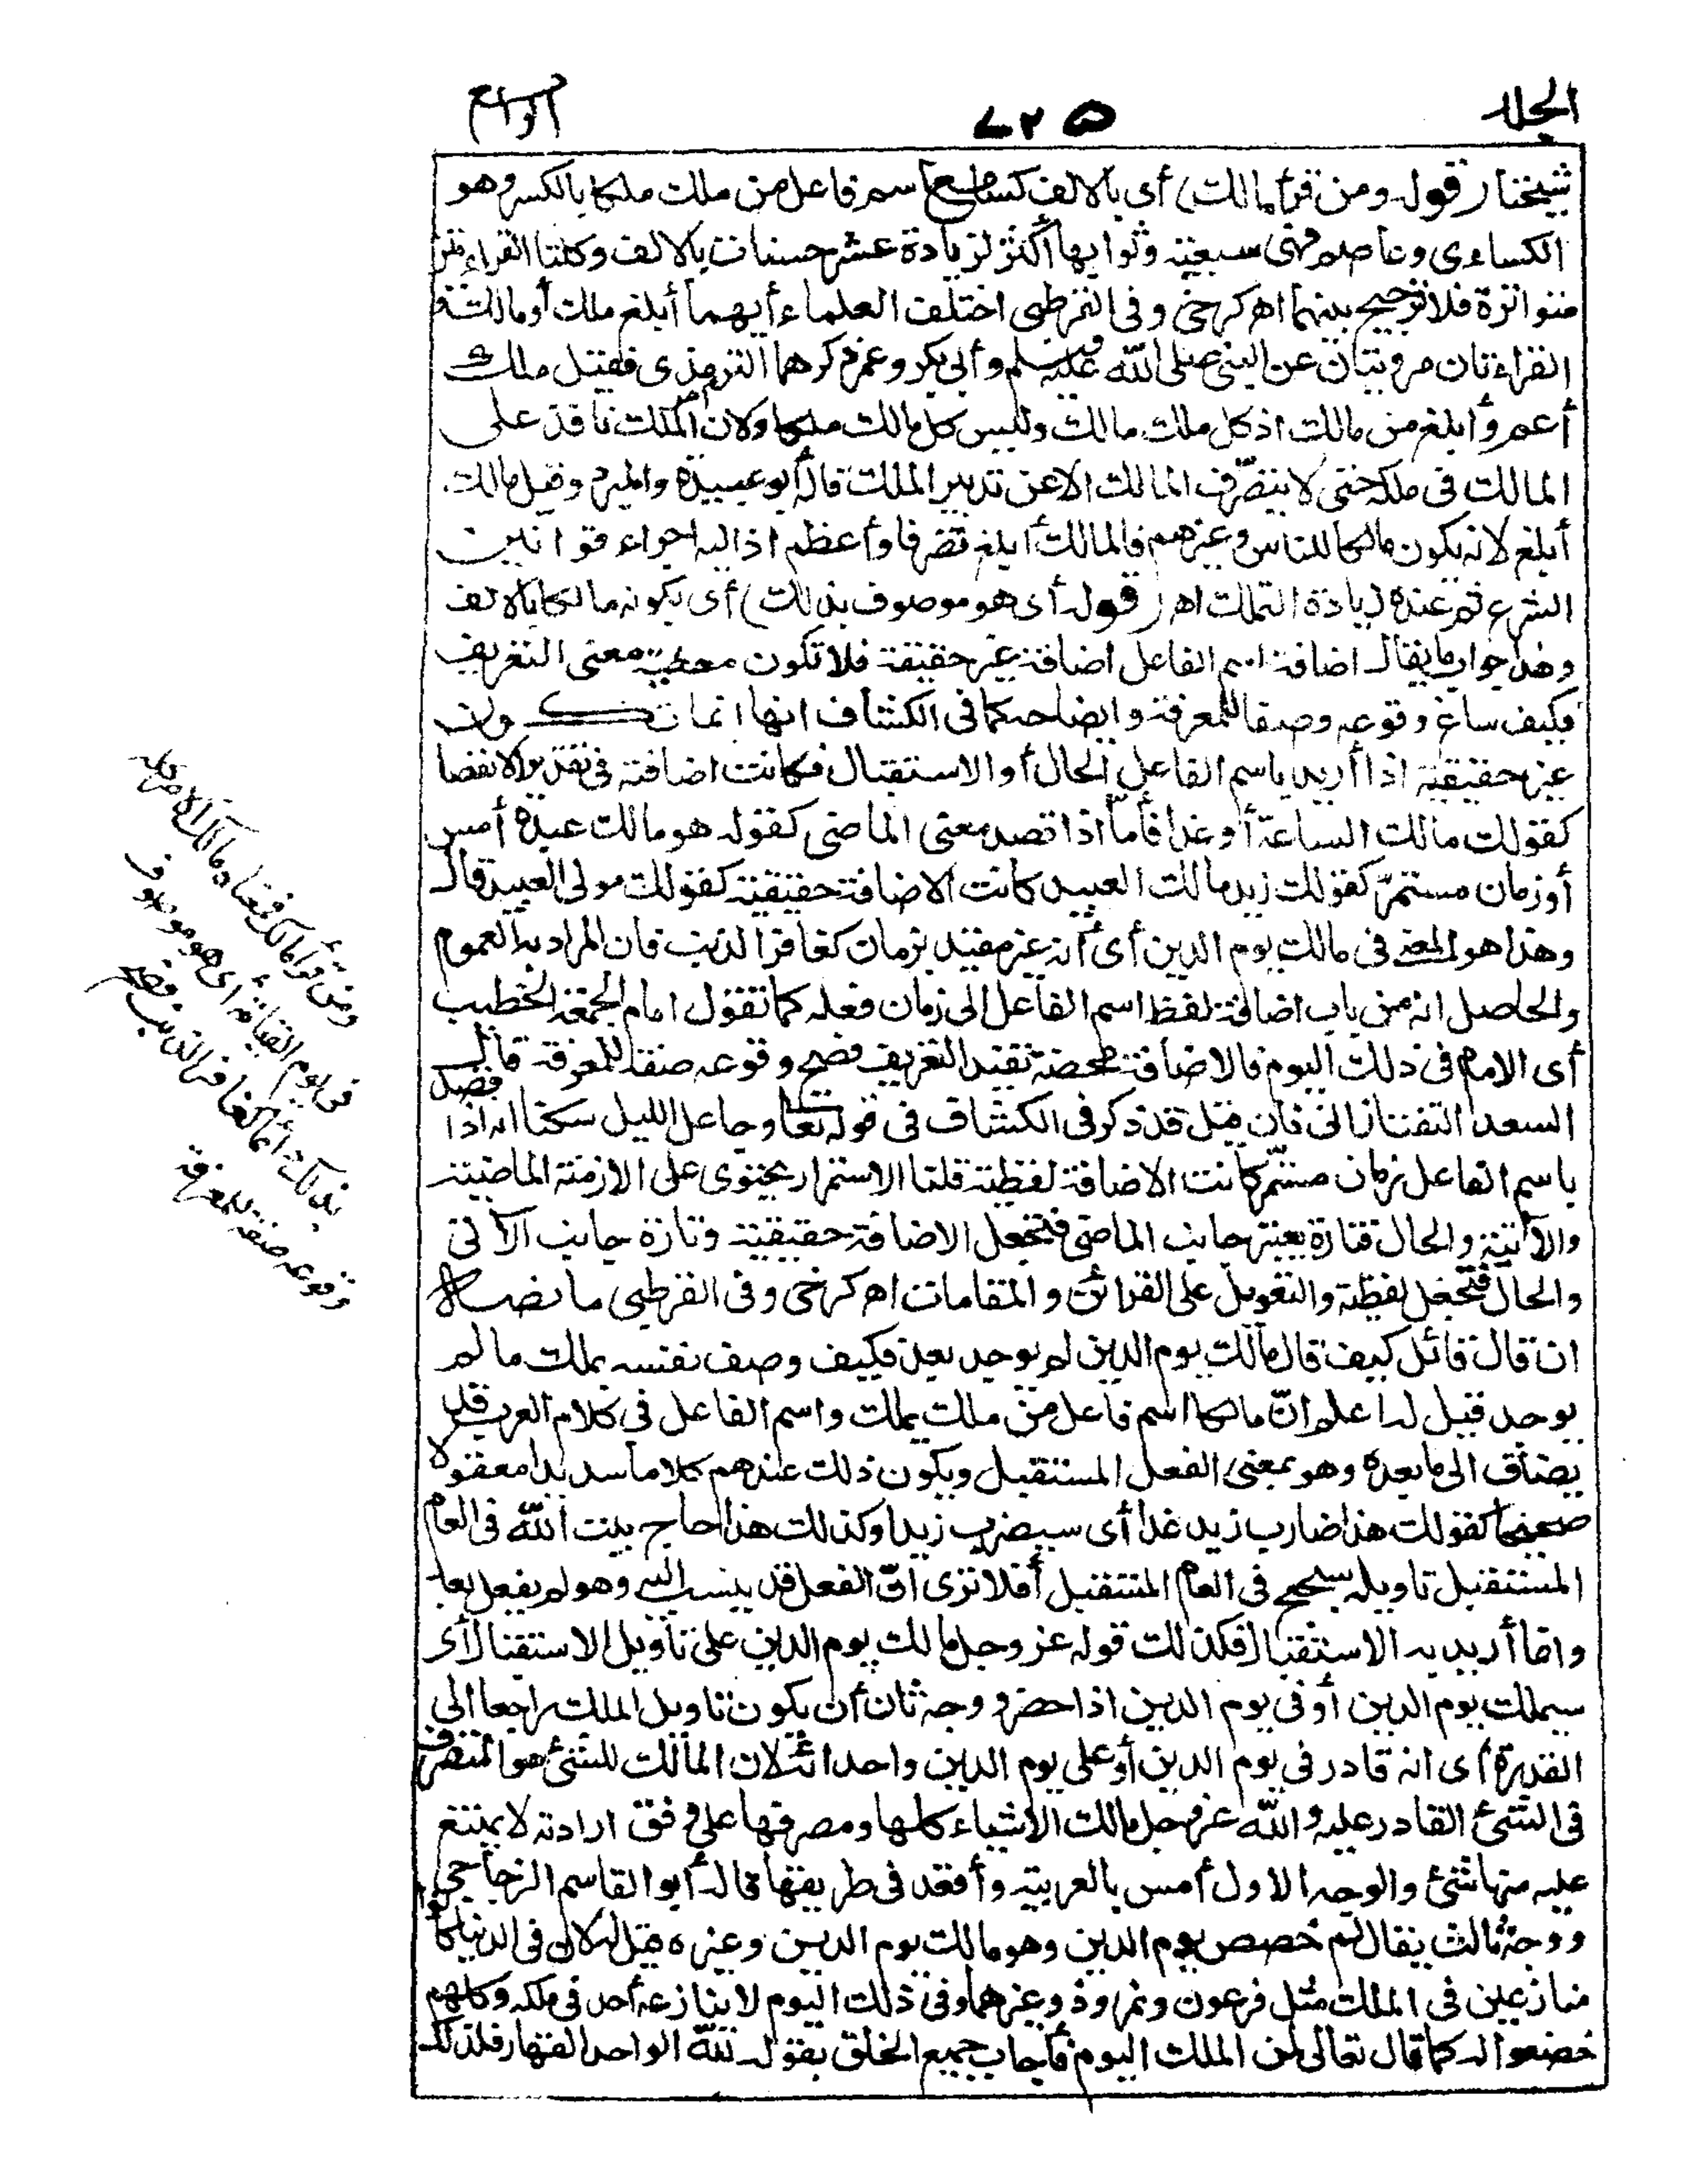 الجلد
الرابع
شيخنا (قوله ومن قرأ مالك) أى بالالف كسامع اسم فاعل من ملك ملكا بالكسر وهو
الكساءى وعاصم فهى سبعية وثوابها أكثر لزيادة عشر حسنات بالالف وكلتا القراءتين
متواترة فلا ترجيح بينهما اهـ كرخى وفى القرطبى اختلف العلماء أيهما أبلغ ملك أو مالك
القراءتان مرويتان عن النبى صلى الله عليه وسلم وأبى بكر وعمر ذكرهما الترمذى فقيل ملك
أعم وأبلغ من مالك اذ كل ملك مالك وليس كل مالك ملكا ولان الملك نافذ على
المالك فى ملكه حتى لا يتصرف المالك الا عن تدبير الملك قاله أبو عبيدة والمبرد وقيل مالك
أبلغ لانه يكون مالكا للناس وغيرهم فالمالك أبلغ تصرفا وأعظم اذ اليه اجراء قوانين
الشرع ثم عنده زيادة التملك اهـ (قوله أى هو موصوف بذلك) أى بكونه مالكا بالالف
وهذا جواب ما يقال اضافة اسم الفاعل اضافة غير حقيقة فلا تكون معطية معنى التعريف
فكيف ساغ وقوعه وصفا للمعرفة وايضاحه كما فى الكشاف انها انما تكون
غير حقيقية اذا أريد باسم الفاعل الحال أو الاستقبال فكانت اضافته فى تقدير الانفصا
كقولك مالك الساعة أو غدا فأما اذا قصد معنى الماضى كقوله هو مالك عبده أمس
أو زمان مستمر كقولك زيد مالك العبيد كانت الاضافة حقيقية كقولك مولى العبيد قال
وهذا هو المعنى فى مالك يوم الدين أى أنه غير مقيد بزمان كغافر الذنب فان المراد به العموم
والحاصل انه من باب اضافة لفظ اسم الفاعل الى زمان فعله كما تقول امام الجمعة الخطيب
أى الامام فى ذلك اليوم فالاضافة محضة تفيد التعريف فصح وقوعه صفة للمعرفة قال
السعد التفتازانى فان قيل قد ذكر فى الكشاف فى قوله تعا وجاعل الليل سكنا انه اذا قصد
باسم الفاعل زمان مستمر كانت الاضافة لفظية قلنا الاستمرار يحتوى على الازمنة الماضية
والآتية والحال فتارة يعتبر جانب الماضى فتجعل الاضافة حقيقية وتارة جانب الآتى
والحال فتجعل لفظية والتعويل على القرائن والمقامات اهـ كرخى وفى القرطبى ما نصه
ان قال قائل كيف قال مالك يوم الدين لم يوجد بعد فكيف وصف نفسه بملك ما لم
يوجد قيل له اعلم انّ مالكا اسم فاعل من ملك يملك واسم الفاعل فى كلام العرب قد
يضاف الى ما بعده وهو بمعنى الفعل المستقبل ويكون ذلك عندهم كلاما سديدا معقولا
صحيحا كقولك هذا ضارب زيد غدا أى سيضرب زيدا وكذلك هذا حاج بيت الله فى العام
المستقبل تاويله سيحج فى العام المستقبل أفلا ترى انّ الفعل قد ينسب اليه وهو لم يفعل بعد
وانما أريد به الاستقبال فكذلك قوله عز وجل مالك يوم الدين على تأويل الاستقبال أى
سيملك يوم الدين أو فى يوم الدين اذا حضر ووجه ثان أن يكون تاويل الملك راجعا الى
القدرة أى انه قادر فى يوم الدين أو على يوم الدين واحداثه لان المالك للشئ هو المتصرف
فى الشئ القادر عليه والله عز وجل مالك الاشياء كلها ومصرفها على وفق ارادته لا يمتنع
عليه منها شئ والوجه الاول أمس بالعربية وأفقد فى طريقها قاله أبو القاسم الزجاجى
ووجه ثالث يقال لم خصص يوم الدين وهو مالك يوم الدين وغيره قيل له لان فى الدنيا كانوا
منازعين فى الملك مثل فرعون ونمروذ وغيرهما وفى ذلك اليوم لا ينازعه أحد فى ملكه وكلهم
خضعوا له كما قال تعالى لمن الملك اليوم فأجاب جميع الخلق بقوله لله الواحد القهار فلذلك
ومن قرأ مالك فمعناه مالك الامر كله
فى يوم القيامة أى هو موصوف
بذلك دائما كغافر الذنب فصح
وقوعه صفة للمعرفة